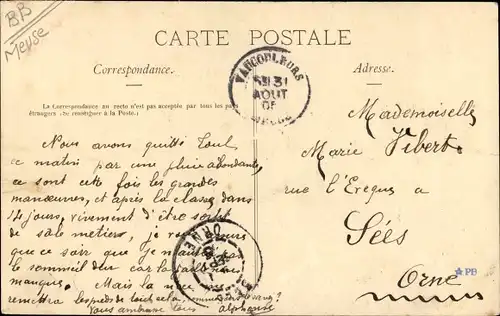 BB
Meuse
CARTE POSTALE
Correspondance.
Adresse.
La Correspondance au recto n'est pas acceptée par tous les pays
étrangers (Se renseigner à la Poste.)
VAUCOULEURS
31
AOUT
MEUSE
Nous avons quitté Toul
ce matin par une pluie abondante,
ce sont cette fois les grandes
manœuvres, et après la classe dans
14 jours, vivement d'être sorti
de sale métiers, je
que ce soir que je par
le sommeil car la
manque. Mais la
remettra les pieds de tout cela,
Vous embrasse tous alphonse
ORNE
Mademoiselle
Marie Vibert
rue l'Evêque a
Sées
Orne
PB